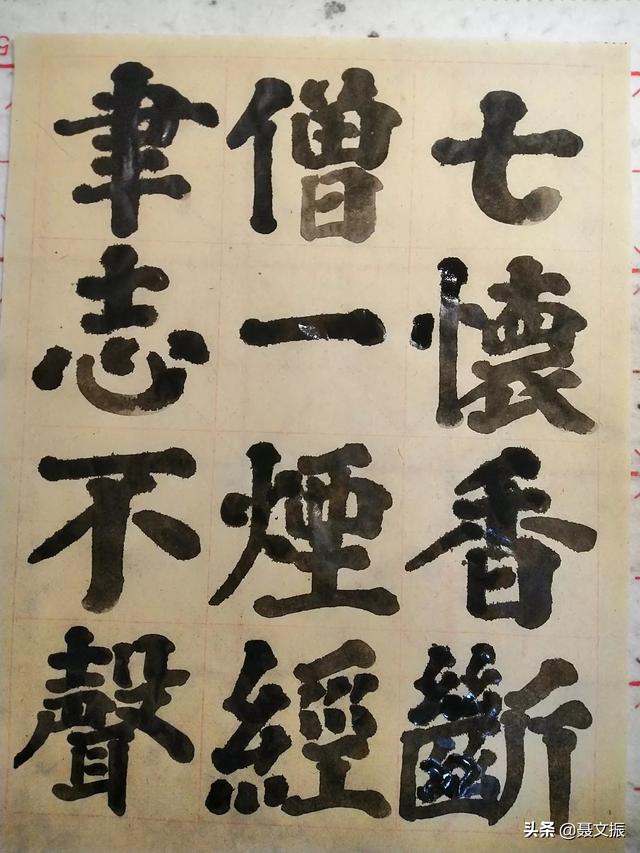 七僧聿
懷一志
香煙不
斷經聲
头条 @聂文振